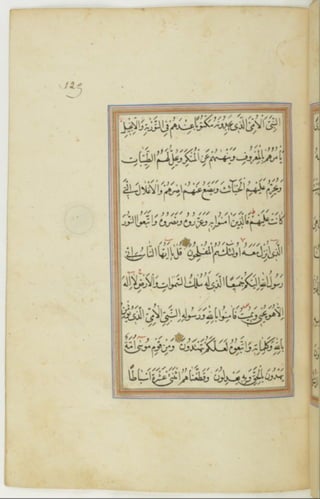 125
النَّبِيَّ الْأُمِّيَّ الَّذِي يَجِدُونَهُ مَكْتُوبًا عِنْدَهُمْ فِي التَّوْرٰيةِ وَالْإِنْجِيلِ
يَأْمُرُهُمْ بِالْمَعْرُوفِ وَيَنْهٰيهُمْ عَنِ الْمُنْكَرِ وَيُحِلُّ لَهُمُ الطَّيِّبَاتِ
وَيُحَرِّمُ عَلَيْهِمُ الْخَبَائِثَ وَيَضَعُ عَنْهُمْ اِصْرَهُمْ وَالْأَغْلَالَ الَّتِي
كَانَتْ عَلَيْهِمْ فَالَّذِينَ اٰمَنُوا بِهِ وَعَزَّرُوهُ وَنَصَرُوهُ وَاتَّبَعُوا النُّورَ
الَّذِي اُنْزِلَ مَعَهُ اُولٰئِكَ هُمُ الْمُفْلِحُونَ قُلْ يَا اَيُّهَا النَّاسُ اِنِّي
رَسُولُ اللهِ اِلَيْكُمْ جَمِيعًا الَّذِي لَهُ مُلْكُ السَّمٰوَاتِ وَالْأَرْضِ لَا اِلٰهَ
اِلَّا هُوَ يُحْيِي وَيُمِيتُ فَاٰمِنُوا بِاللهِ وَرَسُولِهِ النَّبِيِّ الْأُمِّيِّ الَّذِي يُؤْمِنُ
بِاللهِ وَكَلِمَاتِهِ وَاتَّبِعُوهُ لَعَلَّكُمْ تَهْتَدُونَ وَمِنْ قَوْمِ مُوسٰى اُمَّةٌ
يَهْدُونَ بِالْحَقِّ وَبِهِ يَعْدِلُونَ وَقَطَّعْنَاهُمُ اثْنَتَيْ عَشْرَةَ اَسْبَاطًا